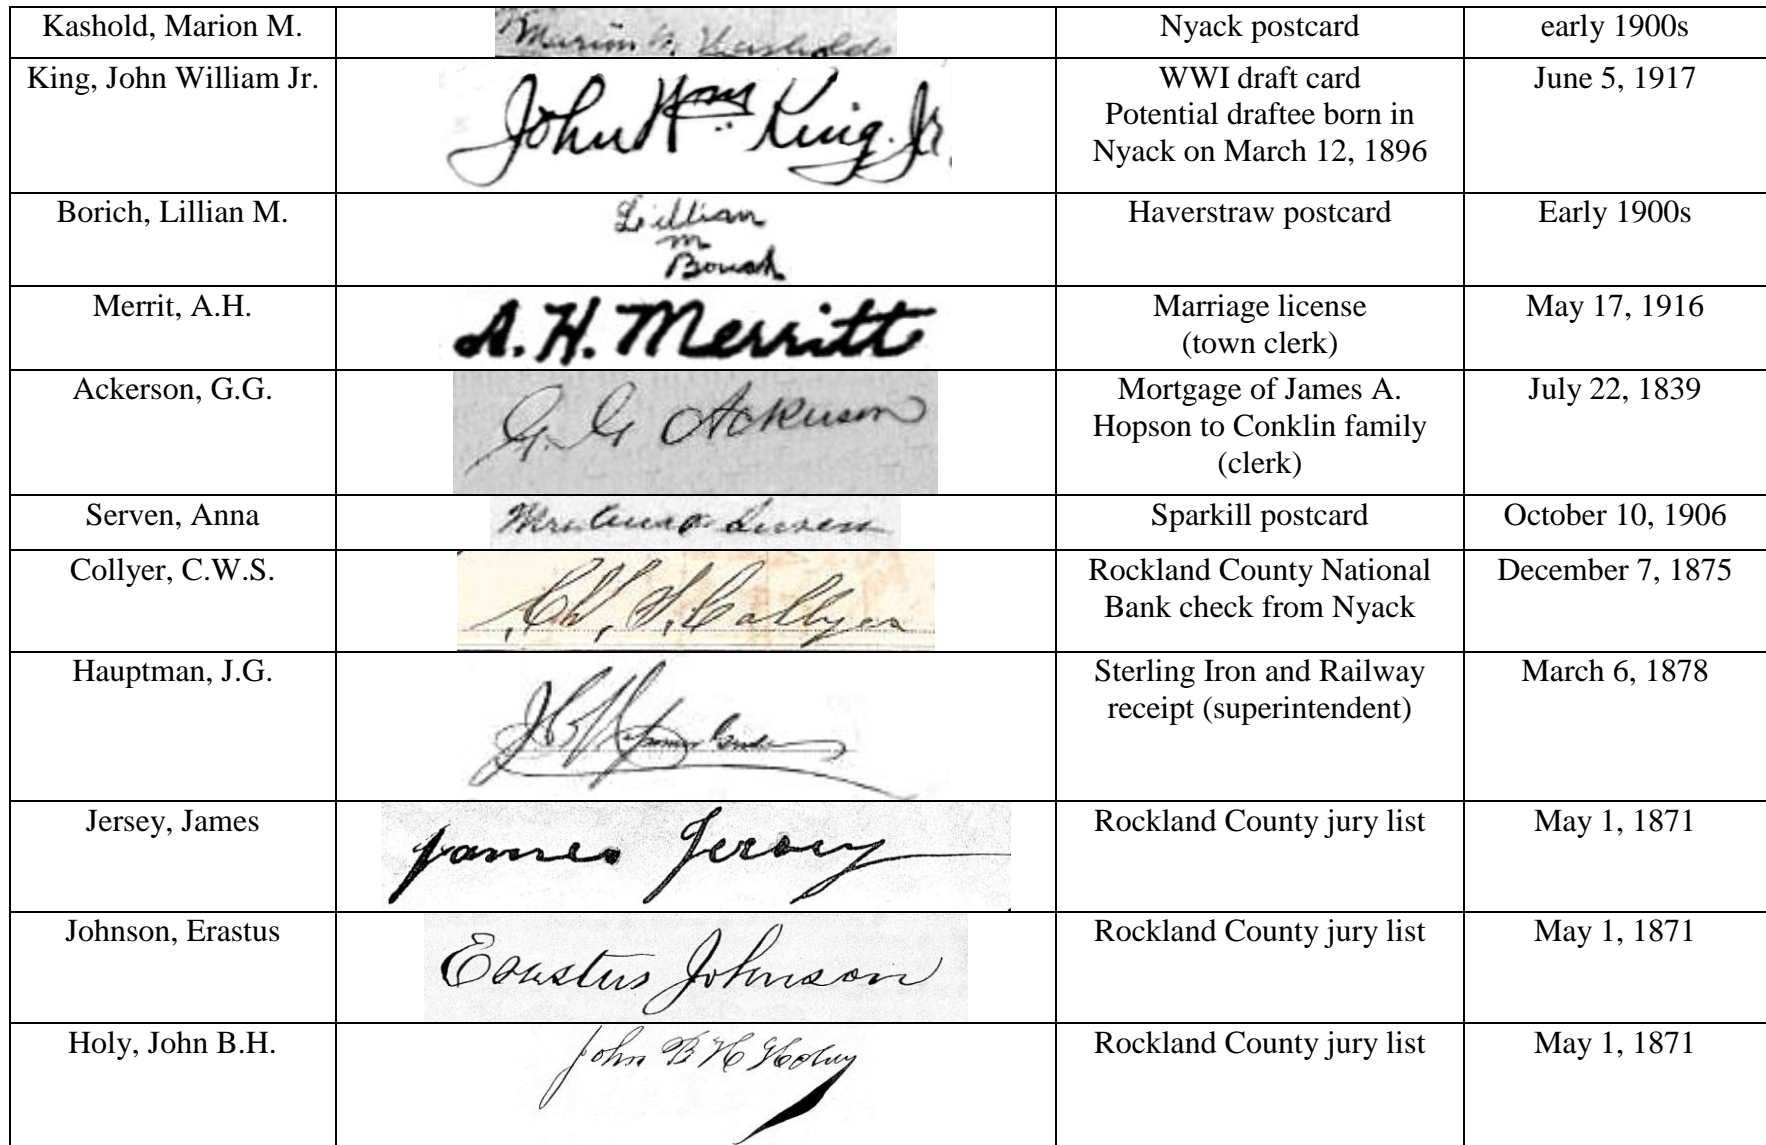 Kashold, Marion M.
Marion M. Kasholds
Nyack postcard
early 1900s
King, John William Jr.
John Wm King. Jr.
WWI draft card
Potential draftee born in
Nyack on March 12, 1896
June 5, 1917
Borich, Lillian M.
Lillian
M
Haverstraw postcard
Early 1900s
Merrit, A.H.
A. H. Merritt
Marriage license
(town clerk)
May 17, 1916
Ackerson, G.G.
G. G. Ackerson
Mortgage of James A.
Hopson to Conklin family
(clerk)
July 22, 1839
Serven, Anna
Mrs Anna Serven
Sparkill postcard
October 10, 1906
Collyer, C.W.S.
Collyer
Rockland County National
Bank check from Nyack
December 7, 1875
Hauptman, J.G.
Sterling Iron and Railway
receipt (superintendent)
March 6, 1878
Jersey, James
James Jersey
Rockland County jury list
May 1, 1871
Johnson, Erastus
Erastus Johnson
Rockland County jury list
May 1, 1871
Holy, John B.H.
John B H
Rockland County jury list
May 1, 1871